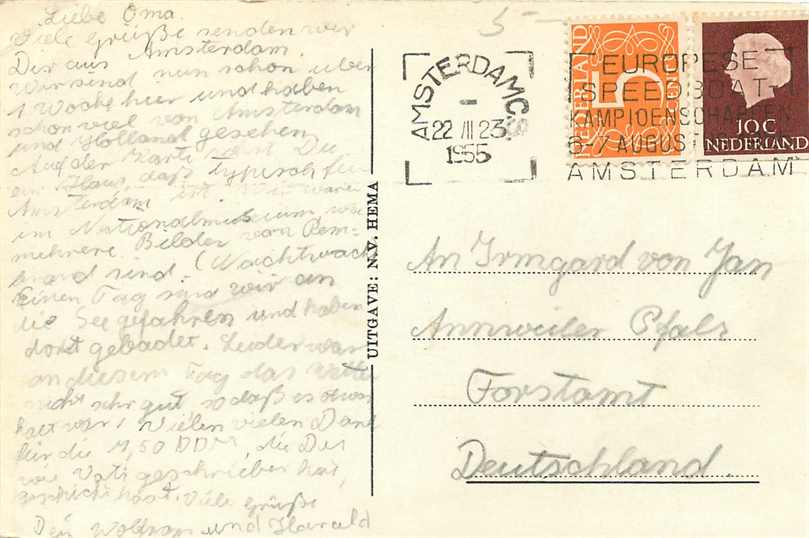 Liebe Oma.
Viele Grüße senden wir
Dir aus Amsterdam.
Wir sind nun schon über
1 Woche hier und haben
schon viel von Amsterdam
und Holland gesehen
Auf der Karte siehst Du
ein Haus, daß typisch für
Amsterdam ist. Wir waren
im Nationalmuseum, wo
mehrere Bilder von Rem-
brand sind. (Nachtwach
Einen Tag sind wir an
die See gefahren und haben
dort gebadet. Leider war
an diesem Tag das Wetter
nicht sehr gut sodaß es
kalt war. Vielen vielen Dank
für die 1,50 DM, die Du
wie Vati geschrieben hat,
geschickt hast. Viele Grüße
Dein Wolfram und Harald
UITGAVE: N.V. HEMA
5-
AMSTERDAM C.S
22 VII 23
1955
NEDERLAND
5
10 C
NEDERLAND
EUROPESE
SPEEDBOAT-
KAMPIOENSCHAPPEN
6-7 AUGUSTUS
AMSTERDAM
An Irmgard von Jan
Annweiler Pfalz
Forstamt
Deutschland.